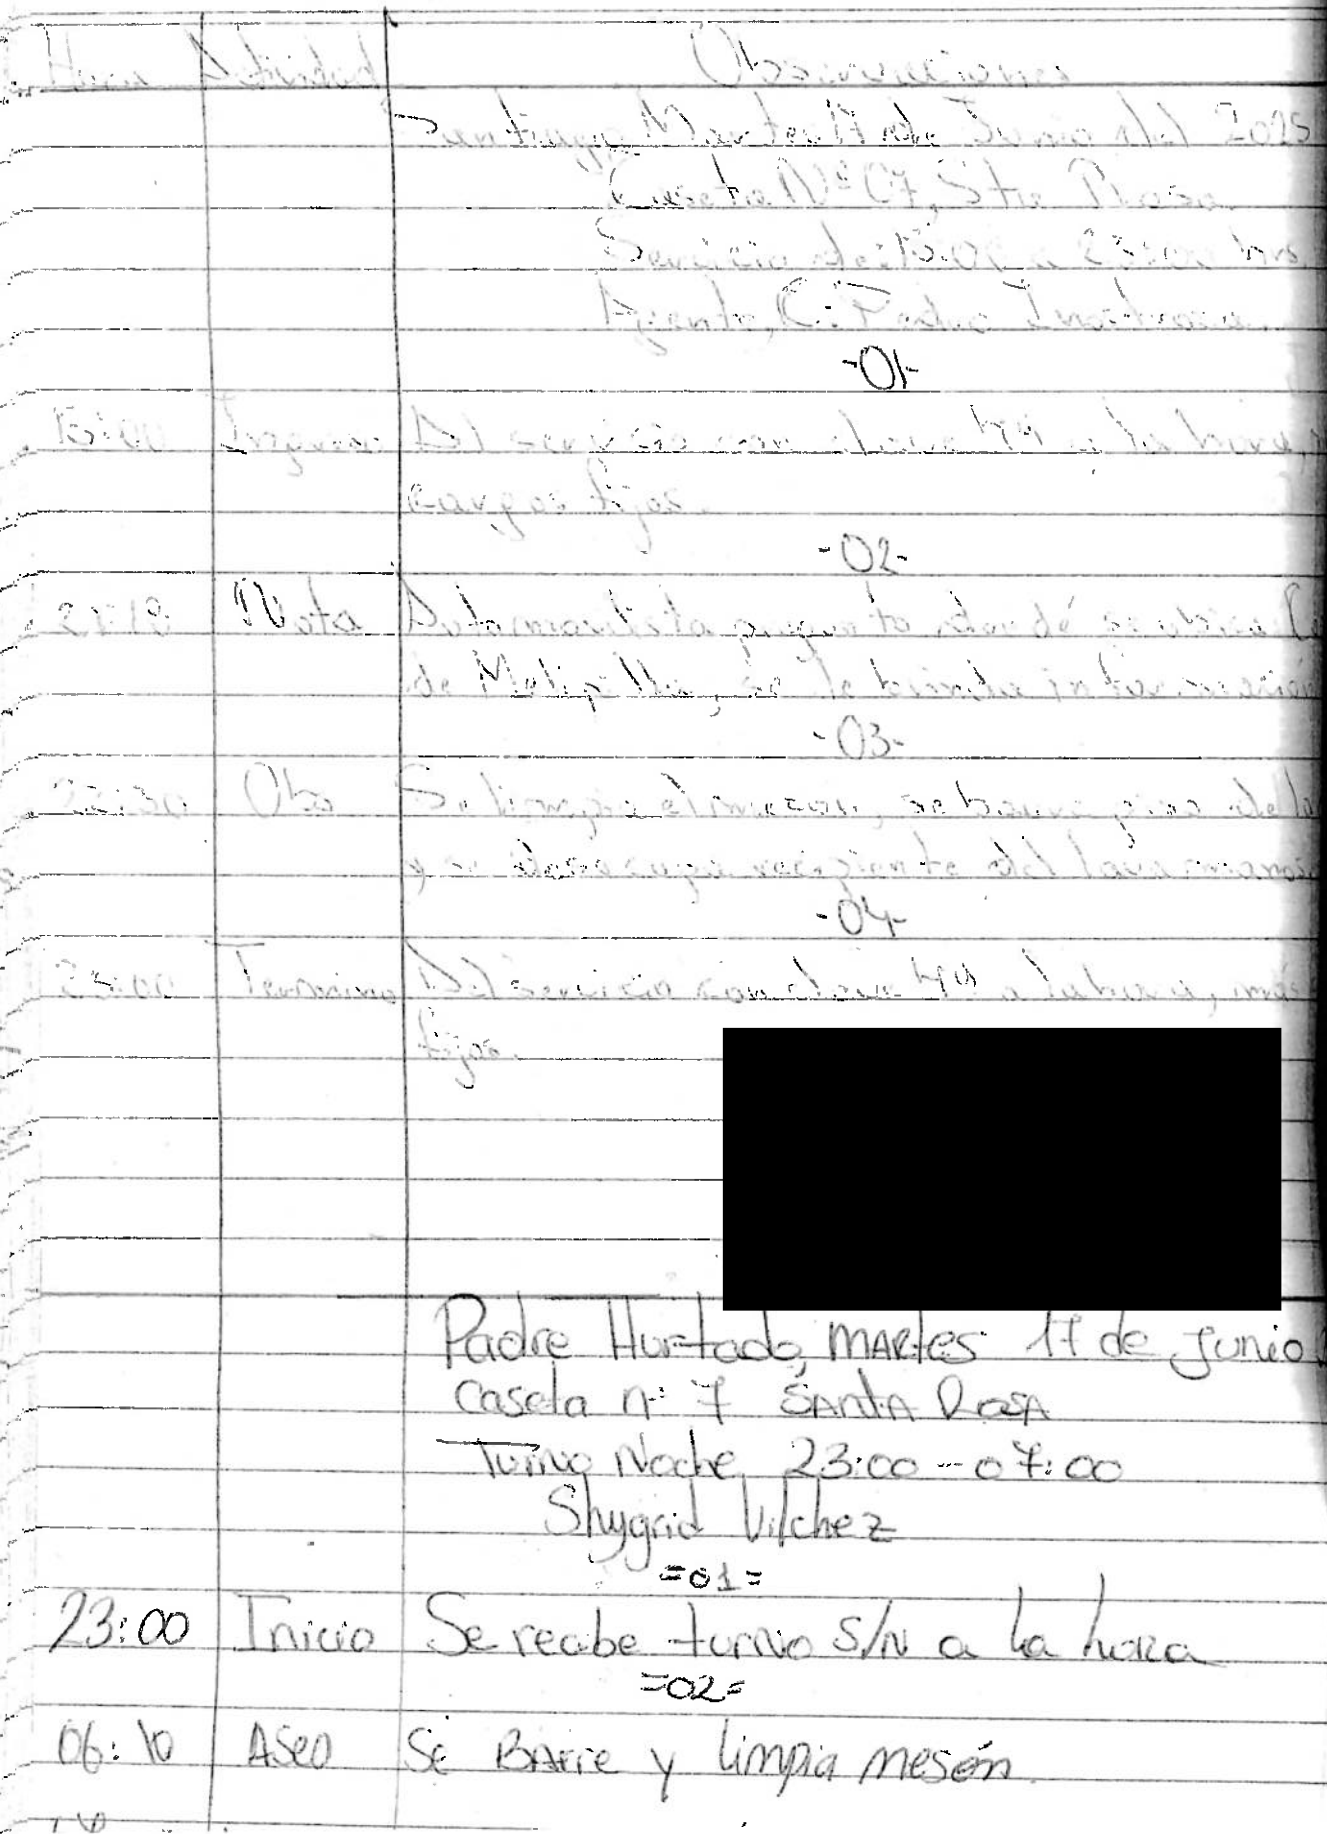 Hora Actividad Observaciones
Santiago, Martes 17 de Junio del 2025
Caseta Nº 07, Sta Rosa
Servicio de: 15:00 a 23:00 hrs.
Agente, C: Pedro
-01-
15:00 Ingreso Del servicio con clave 44 a la hora,
cargos fijos.
-02-
21:18 Nota Automovilista pregunta donde se ubica
de Melipilla, se le brinda información
-03-
22:30 Obs Se limpia el meson, se barre piso de la
y se desocupa recipiente del lavamanos
-04-
23:00 Termino Del servicio con clave 44 a la hora, más
fijos.
Padre Hurtado, MARtes 17 de junio
Caseta n: 7 SAntA ROSA
Turno Noche 23:00 - 07:00
Shygrid Vilchez
=01=
23:00 Inicio Se recibe turno S/N a la hora
=02=
06:10 ASeo Se BArre y limpia mesón.